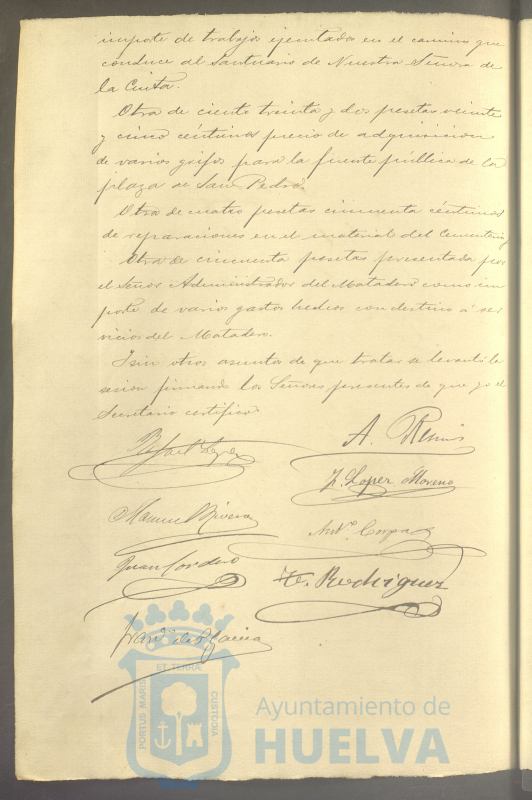 importe de trabajos ejecutados en el camino que
conduce al Santuario de Nuestra Señora de
la Cinta.
Otra de ciento treinta y dos pesetas veinte
y cinco céntimos precio de adquisicion
de varios grifos para la fuente pública de la
plaza de San Pedro.
Otra de cuatro pesetas cincuenta céntimos
de reparaciones en el material del Cementerio
Otra de cincuenta pesetas presentada por
el Señor Administrador del Matadero como im
porte de varios gastos hechos con destino á ser
vicios del Matadero.
I sin otros asuntos de que tratar se levantó la
sesion firmando los Señores presentes de que yo el
Secretario certifico
Rafael Lopez
A.
J. Lopez Moreno
Manuel Rivera
Antº
Juan Cordero
F. Rodriguez
Franco de P. Garcia
PORTUS MARIS
ET TERRÆ
CUSTODIA
Ayuntamiento de
HUELVA